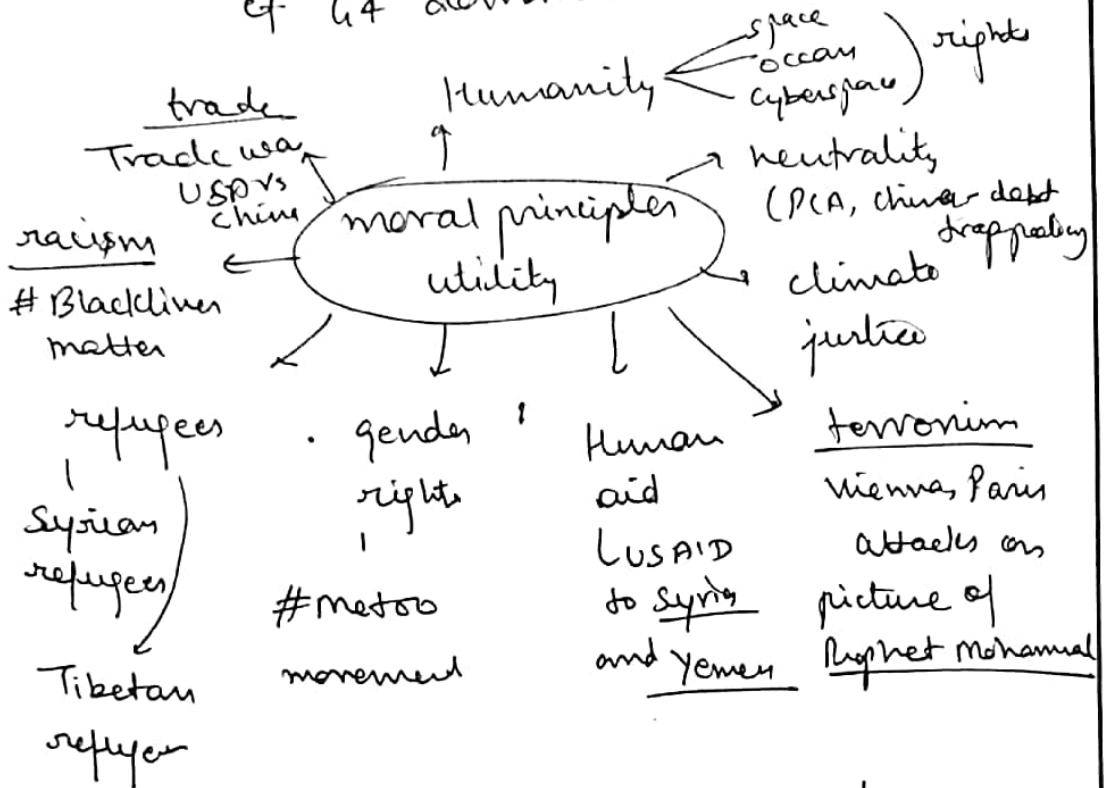 of G4
Humanity
space
ocean
cyberspace
rights
trade
Trade war
US vs
China
neutrality
(PCA, China debt
trap policy
moral principles
utility
racism
# Blacklives
matter
climate
justice
refugees
Syrian
refugees
Tibetan
refugee
gender
rights
#metoo
movement
Human
aid
USAID
to Syria
and Yemen
terrorism
Vienna, Paris
attacks on
picture of
Prophet Mohammad